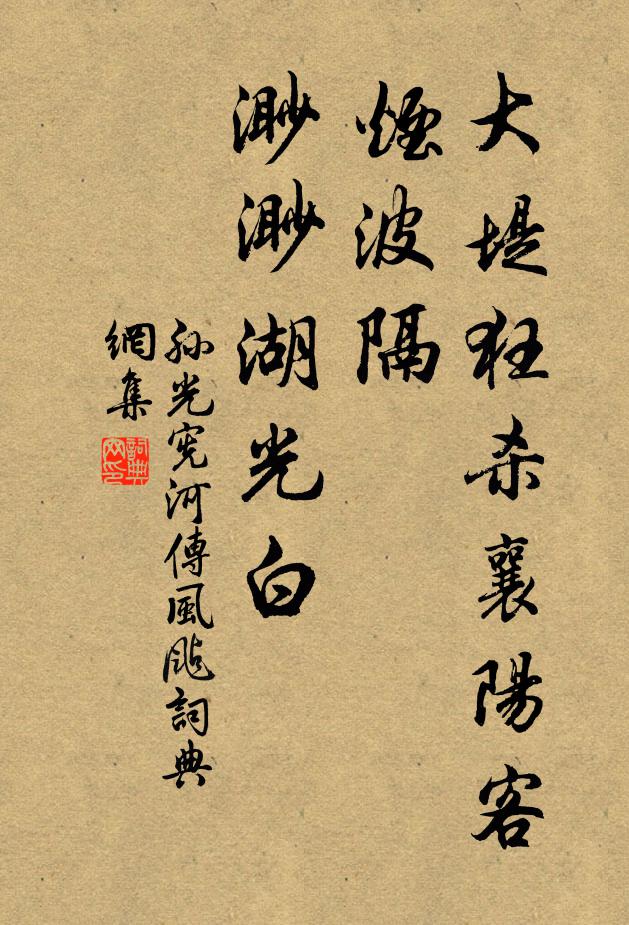 大堤狂杀襄陽客
煙波隔
渺渺湖光白
孙光宪河傳風颭詞典
網集
詞典
网印